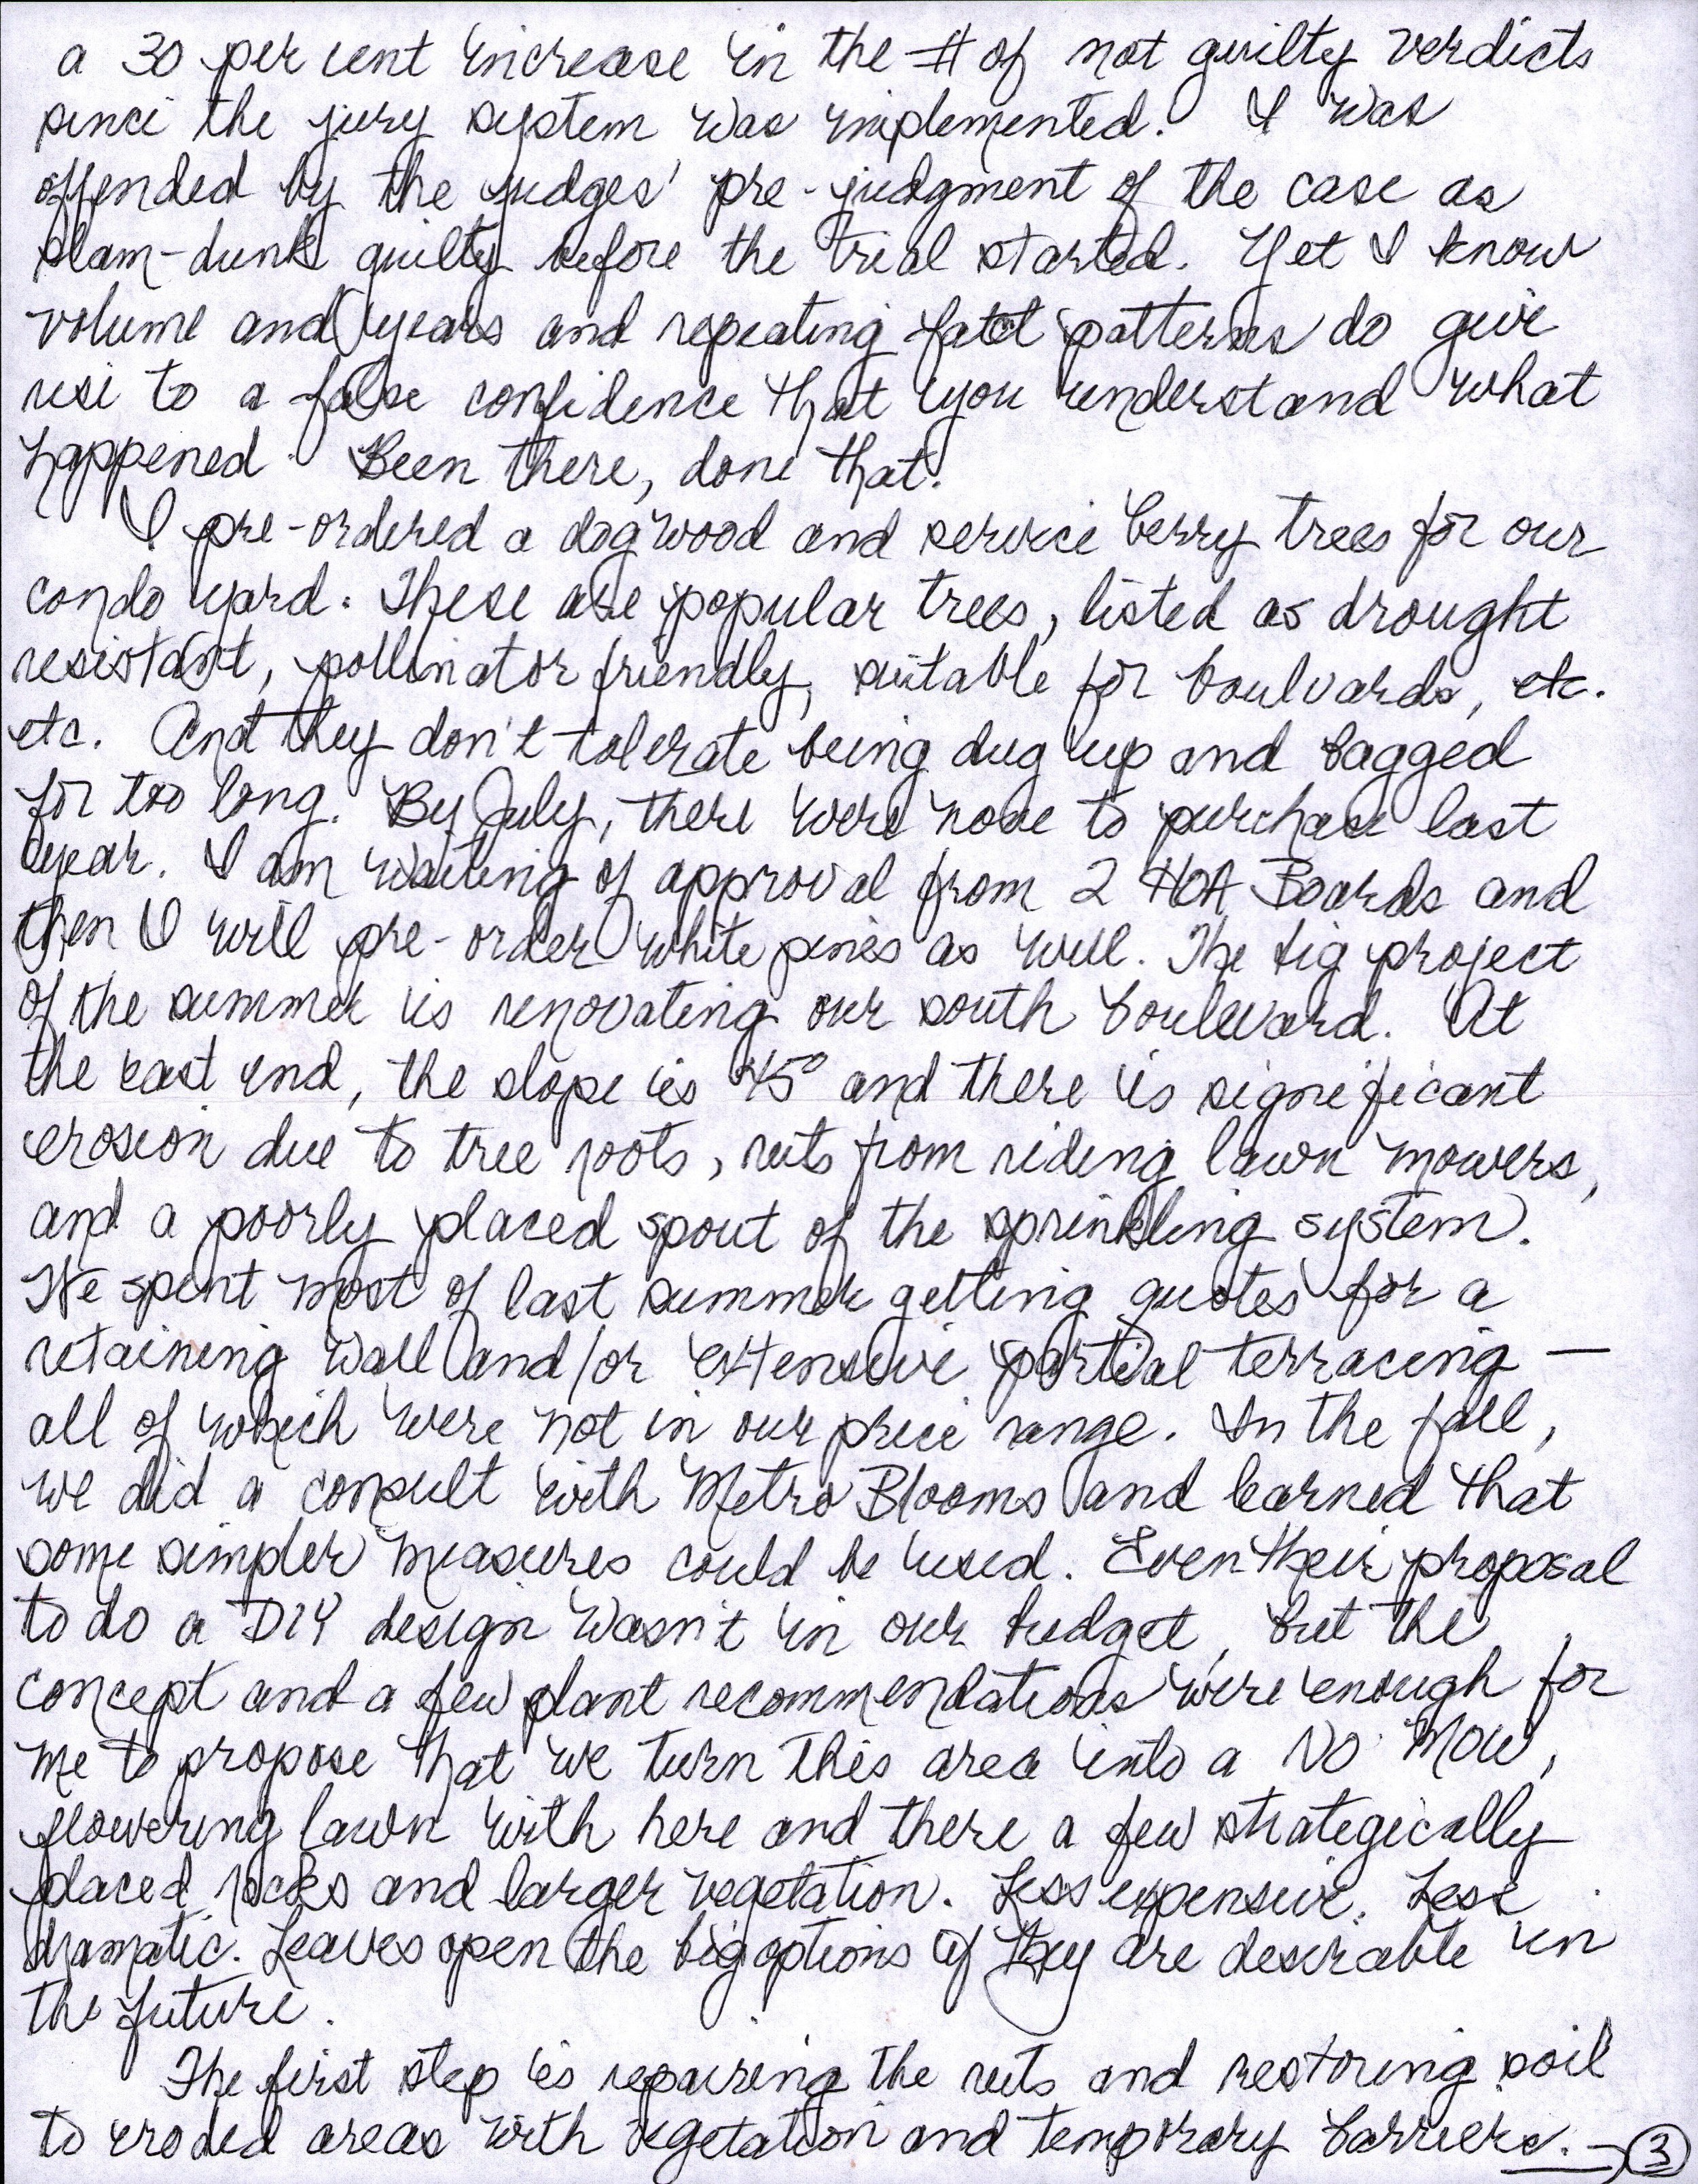 a 30 per cent increase in the # of not guilty verdicts
since the jury system was implemented. I was
offended by the judges' pre-judgment of the case as
slam-dunk guilty before the trial started. Yet I know
volume and years and repeating fact patterns do give
rise to a false confidence that you understand what
happened. Been there, done that.
I pre-ordered a dogwood and service berry trees for our
condo yard. These are popular trees, listed as drought
resistant, pollinator friendly, suitable for boulvards, etc.
etc. And they don't tolerate being dug up and bagged
for too long. By July, there were none to purchase last
year. I am waiting of approval from 2 HOA Boards and
then I will pre-order white pines as well. The big project
of the summer is renovating our south boulevard. At
the east end, the slope is 45° and there is significant
erosion due to tree roots, ruts from riding lawn mowers,
and a poorly placed spout of the sprinkling system.
We spent most of last summer getting quotes for a
retaining wall and/or extensive partial terracing —
all of which were not in our price range. In the fall,
we did a consult with Metro Blooms and learned that
some simpler measures could be used. Even their proposal
to do a DIY design wasn't in our budget, but the
concept and a few plant recommendations were enough for
me to propose that we turn this area into a No Mow,
flowering lawn with here and there a few strategically
placed rocks and larger vegetation. Less expensive. Less
dramatic. Leaves open the big options if they are desirable in
the future.
The first step is repairing the ruts and restoring soil
to eroded areas with vegetation and temporary barriers. → 3